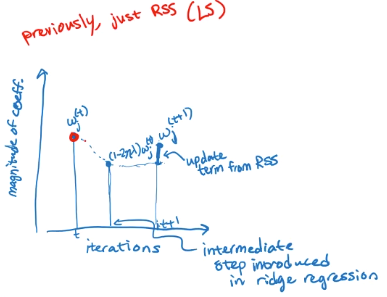 previously, just RSS (LS)
magnitude of coeff.
wⱼ(t)
(1-2ηλ)wⱼ(t)
wⱼ(t+1)
update
term from RSS
t
t+1
iterations
intermediate
step introduced
in ridge regression